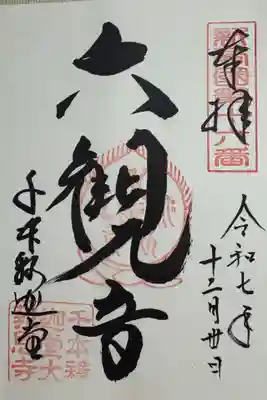 奉拝
令和七年
十二月卅日
六観音
千本釈迦堂
千本釋
迦堂大
報恩寺